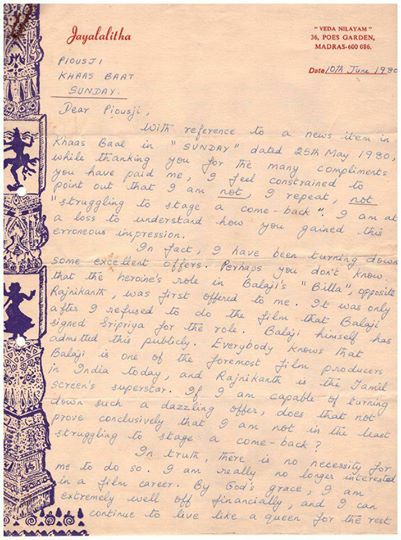 Jayalalitha
"VEDA NILAYAM"
36, POES GARDEN,
MADRAS-600 086.
Date 10th June 1980
PIOUSJI
KHAAS BAAT
SUNDAY.
Dear Piousji,
With reference to a news item in
Khaas Baat in "SUNDAY" dated 25th May 1980,
while thanking you for the many compliments
you have paid me, I feel constrained to
point out that I am not, I repeat, not
"struggling to stage a come-back". I am at
a loss to understand how you gained this
erroneous impression.
In fact, I have been turning down
some excellent offers. Perhaps you don't know
that the heroine's role in Balaji's "Billa", opposite
Rajnikanth, was first offered to me. It was only
after I refused to do the film that Balaji
signed Sripriya for the role. Balaji himself has
admitted this publicly. Everybody knows that
Balaji is one of the foremost film producers
in India today, and Rajnikanth is the Tamil
screen's superstar. If I am capable of turning
down such a dazzling offer, does that not
prove conclusively that I am not in the least
struggling to stage a come-back?
In truth, there is no necessity for
me to do so. I am really no longer interested
in a film career. By God's grace, I am
extremely well off financially, and I can
continue to live like a queen for the rest